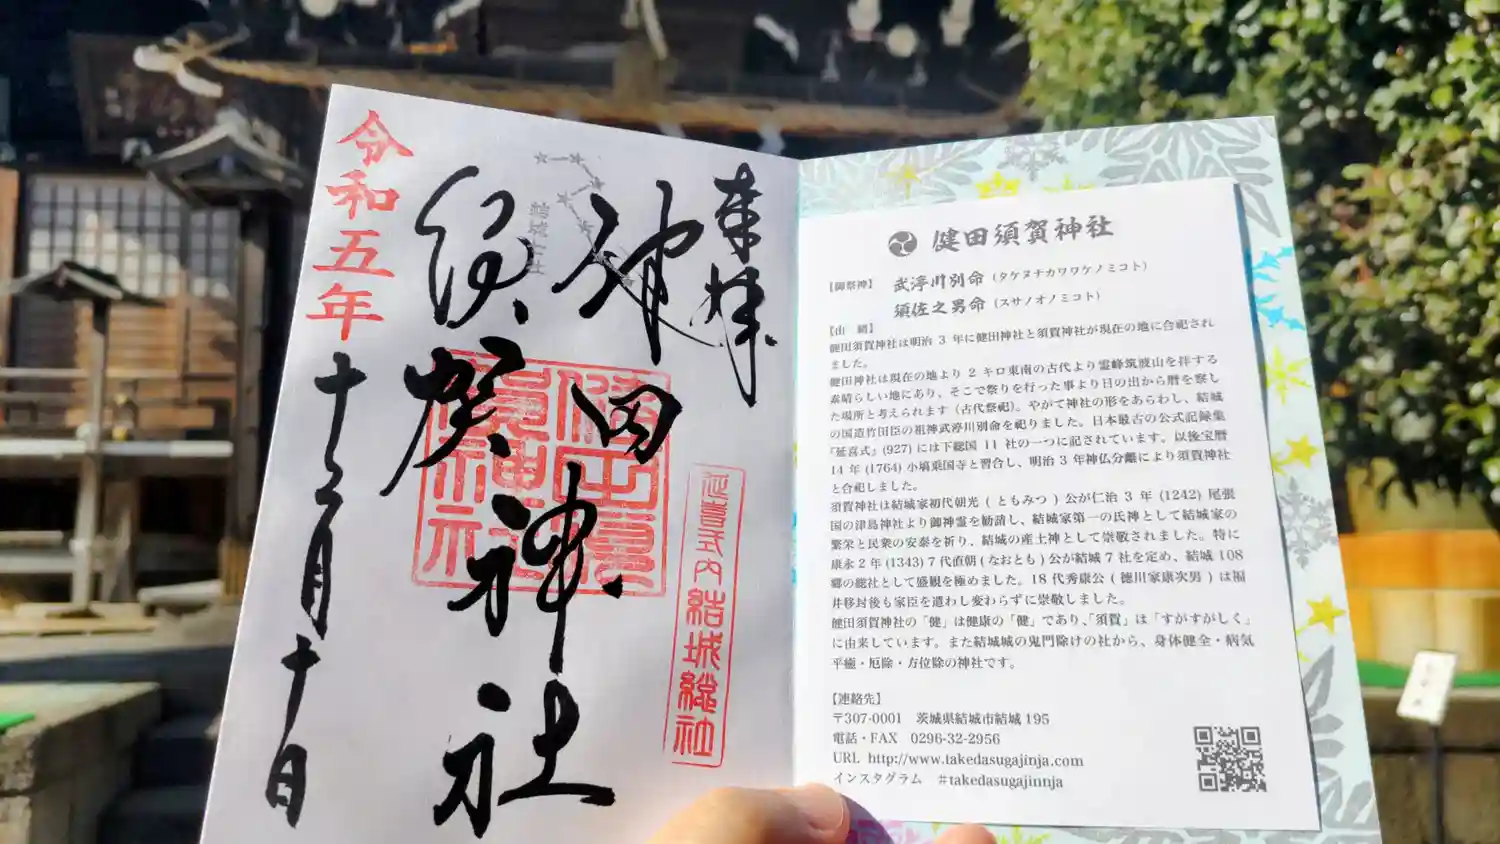 奉拝
健田
須賀神社
延喜式内結城総社
結城七社
令和五年
十二月十日
健田須賀神社
【御祭神】 武渟川別命(タケヌナカワワケノミコト)
須佐之男命(スサノオノミコト)
【由 緒】
健田須賀神社は明治 3 年に健田神社と須賀神社が現在の地に合祀され
ました。
健田神社は現在の地より 2 キロ東南の古代より霊峰筑波山を拝する
素晴らしい地にあり、そこで祭りを行った事より日の出から暦を察し
た場所と考えられます(古代祭祀)。やがて神社の形をあらわし、結城
の国造竹田臣の祖神武渟川別命を祀りました。日本最古の公式記録集
『延喜式』(927) には下総国 11 社の一つに記されています。以後宝暦
14 年 (1764) 小塙乗国寺と習合し、明治 3 年神仏分離により須賀神社
と合祀しました。
須賀神社は結城家初代朝光 ( ともみつ ) 公が仁治 3 年 (1242) 尾張
国の津島神社より御神霊を勧請し、結城家第一の氏神として結城家の
繁栄と民衆の安泰を祈り、結城の産土神として崇敬されました。特に
康永 2 年 (1343) 7 代直朝 ( なおとも ) 公が結城 7 社を定め、結城 108
郷の総社として盛観を極めました。18 代秀康公 ( 徳川家康次男 ) は福
井移封後も家臣を遣わし変わらずに崇敬しました。
健田須賀神社の「健」は健康の「健」であり、「須賀」は「すがすがしく」
に由来しています。また結城城の鬼門除けの社から、身体健全・病気
平癒・厄除・方位除の神社です。
【連絡先】
〒307-0001 茨城県結城市結城 195
電話・FAX 0296-32-2956
URL http://www.takedasugajinja.com
インスタグラム #takedasugajinnja